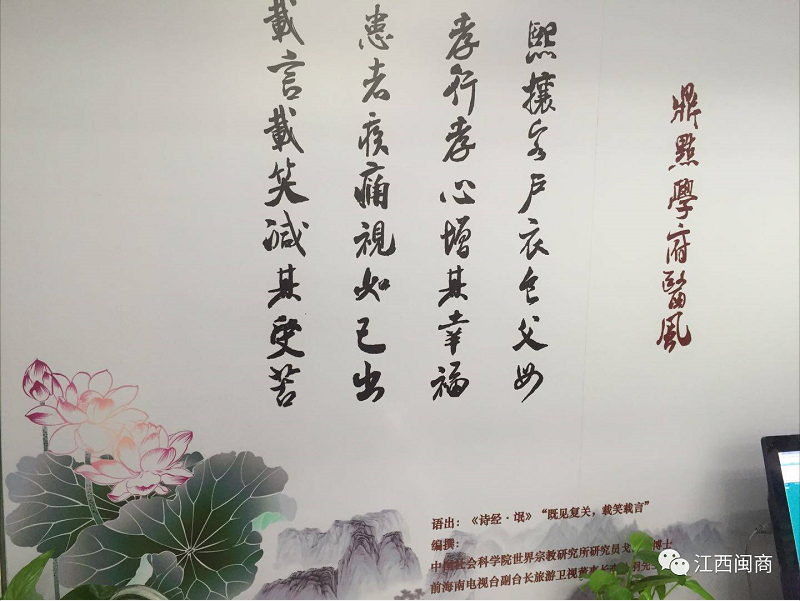 鼎點學府醫風
熙攘客戶衣食父母
孝行孝心增其幸福
患者疾痛視如己出
載言載笑減其受苦
语出:《诗经·氓》“既见复关,载笑载言”
编撰:
中国社会科学院世界宗教研究所研究员戈 博士
前海南电视台副台长旅游卫视董事长
江西闽商